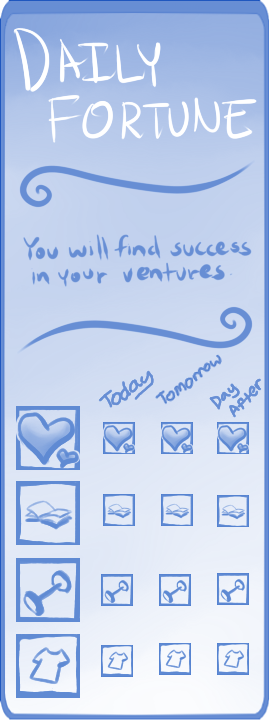 DAILY
FORTUNE
You will find success
in your ventures.
Today Tomorrow Day After